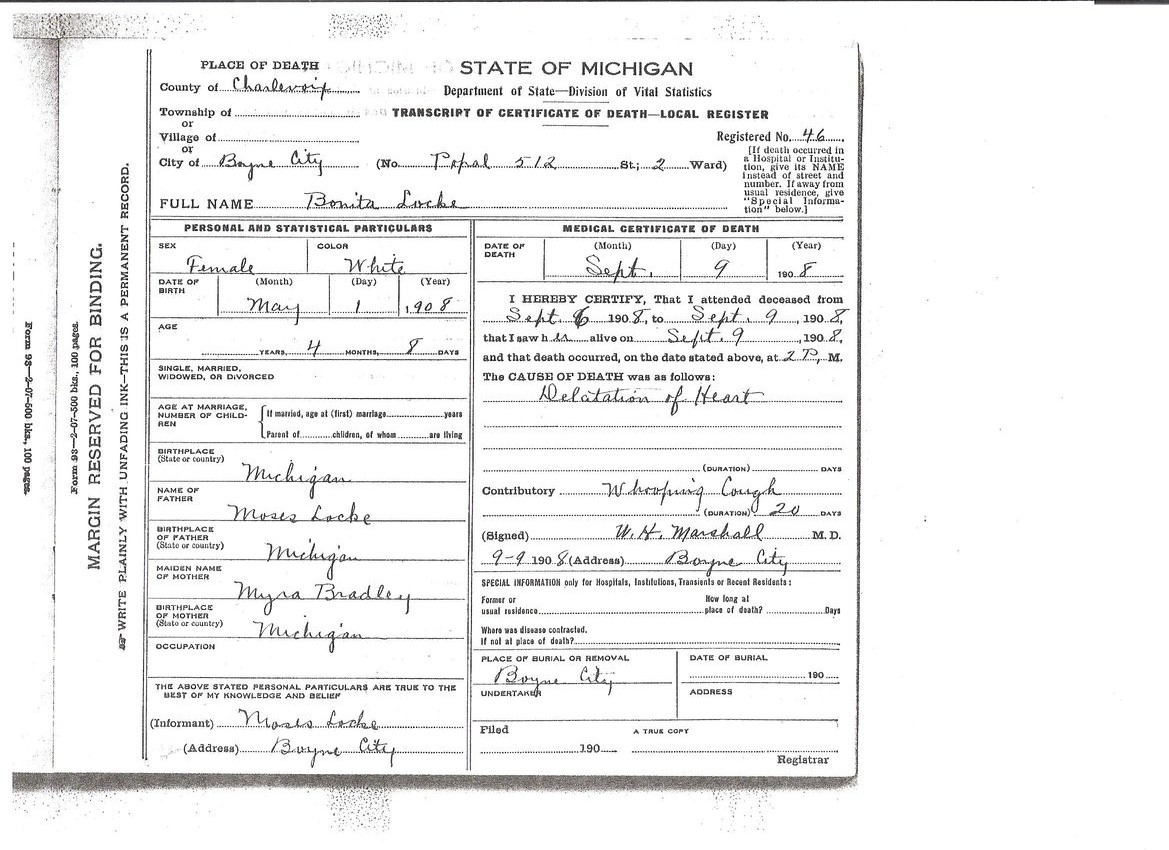 PLACE OF DEATH
STATE OF MICHIGAN
County of Charlevoix
Department of State—Division of Vital Statistics
Township of
TRANSCRIPT OF CERTIFICATE OF DEATH—LOCAL REGISTER
or
Village of
Registered No. 46
or
City of Boyne City (No. Popal 512 St.; 2 Ward)
[If death occurred in
a Hospital or Institu-
tion, give its NAME
instead of street and
number. If away from
usual residence, give
"Special Informa-
tion" below.]
FULL NAME Bonita Locke
PERSONAL AND STATISTICAL PARTICULARS
SEX
Female
COLOR
White
DATE OF
BIRTH
(Month) (Day) (Year)
May 1 1908
AGE
YEARS, 4 MONTHS, 8 DAYS
SINGLE, MARRIED,
WIDOWED, OR DIVORCED
AGE AT MARRIAGE,
NUMBER OF CHILD-
REN
If married, age at (first) marriage years
Parent of children, of whom are living
BIRTHPLACE
(State or country)
Michigan
NAME OF
FATHER
Moses Locke
BIRTHPLACE
OF FATHER
(State or country)
Michigan
MAIDEN NAME
OF MOTHER
Myra Bradley
BIRTHPLACE
OF MOTHER
(State or country)
Michigan
OCCUPATION
THE ABOVE STATED PERSONAL PARTICULARS ARE TRUE TO THE
BEST OF MY KNOWLEDGE AND BELIEF
(Informant) Moses Locke
(Address) Boyne City
MEDICAL CERTIFICATE OF DEATH
DATE OF
DEATH
(Month) (Day) (Year)
Sept. 9 1908
I HEREBY CERTIFY, That I attended deceased from
Sept. 6 1908, to Sept. 9, 1908,
that I saw her alive on Sept. 9, 1908,
and that death occurred, on the date stated above, at 2 P. M.
The CAUSE OF DEATH was as follows:
Delatation of Heart
(DURATION) DAYS
Contributory Whooping Cough
(DURATION) 20 DAYS
(Signed) W. H. Marshall M. D.
9-9 1908 (Address) Boyne City
SPECIAL INFORMATION only for Hospitals, Institutions, Transients or Recent Residents:
Former or
usual residence
How long at
place of death? Days
Where was disease contracted,
if not at place of death?
PLACE OF BURIAL OR REMOVAL
Boyne City
DATE OF BURIAL
190
UNDERTAKER
ADDRESS
Filed
190
A TRUE COPY
Registrar
MARGIN RESERVED FOR BINDING.
WRITE PLAINLY WITH UNFADING INK—THIS IS A PERMANENT RECORD.
Form 93—2-07-500 bks., 100 pages.
Form 93—2-07-500 bks., 100 pages.